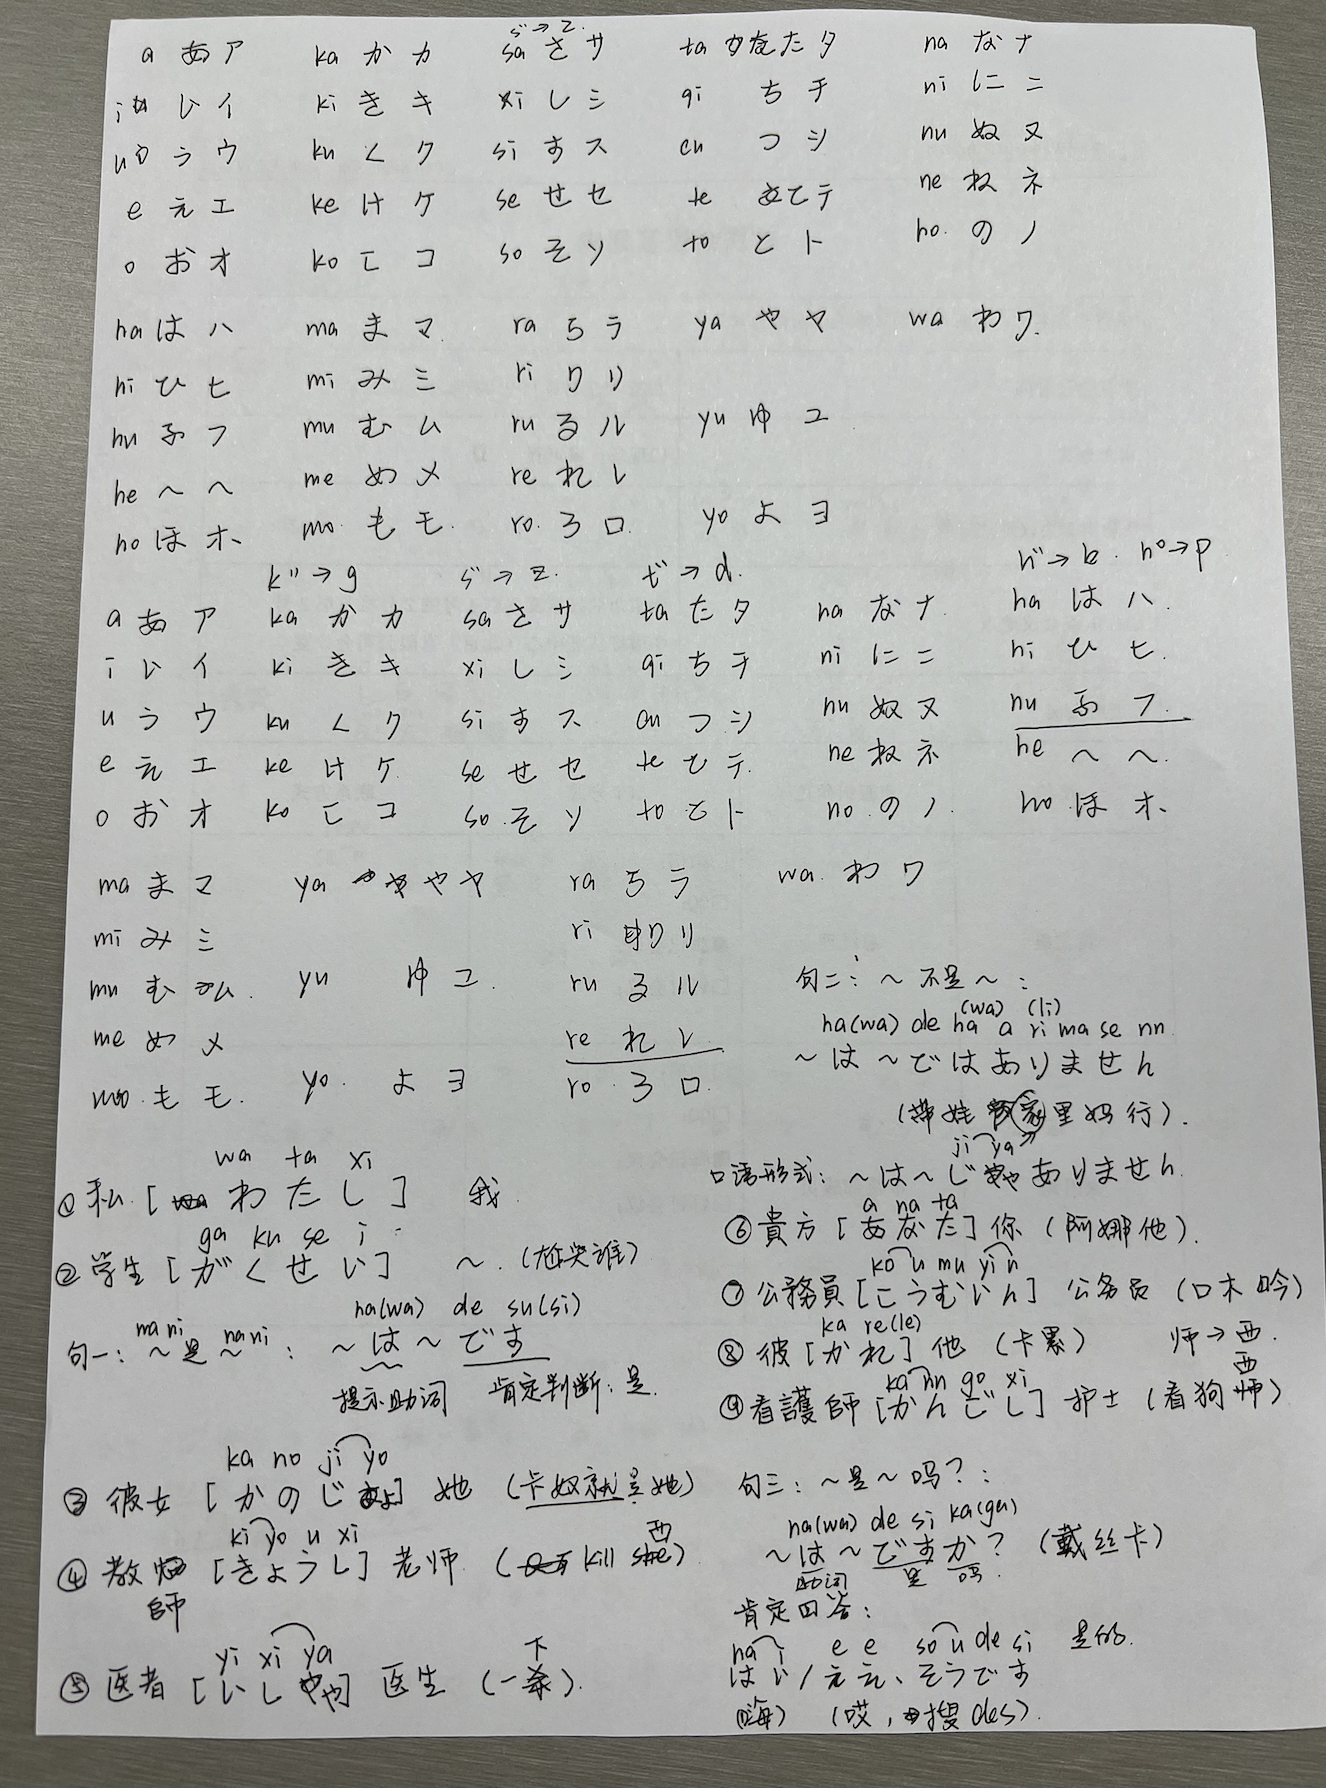 s゛→z
a あ ア ka か カ sa さ サ ta た タ na な ナ
i い イ ki き キ xi し シ qi ち チ ni に ニ
u う ウ ku く ク si す ス cu つ シ nu ぬ ヌ
e え エ ke け ケ se せ セ te て テ ne ね ネ
o お オ ko こ コ so そ ソ to と ト no の ノ
ha は ハ ma ま マ ra ら ラ ya や ヤ wa わ ワ
hi ひ ヒ mi み ミ ri り リ
hu ふ フ mu む ム ru る ル yu ゆ ユ
he へ ヘ me め メ re れ レ
ho ほ ホ mo も モ ro ろ ロ yo よ ヨ
k゛→g s゛→z t゛→d h゛→b h゜→p
a あ ア ka か カ sa さ サ ta た タ na な ナ ha は ハ
i い イ ki き キ xi し シ qi ち チ ni に ニ hi ひ ヒ
u う ウ ku く ク si す ス cu つ シ nu ぬ ヌ hu ふ フ
e え エ ke け ケ se せ セ te て テ ne ね ネ he へ ヘ
o お オ ko こ コ so そ ソ to と ト no の ノ ho ほ ホ
ma ま マ ya や ヤ ra ら ラ wa わ ワ
mi み ミ ri り リ
mu む ム yu ゆ ユ ru る ル
me め メ re れ レ
mo も モ yo よ ヨ ro ろ ロ
句二:~不是~:
(wa) (li)
ha(wa) de ha a ri ma se nn
~は~ではありません
(带娃家里妈行)
ji ya
口语形式:~は~じゃありません
wa ta xi
①私[わたし] 我
ga ku se i
②学生[がくせい] ~(尬哭谁)
nani nani ha(wa) de su(si)
句一:~是~:~は~です
提示助词 肯定判断:是
ka no ji yo
③彼女[かのじょ]她(卡奴就是她)
ki yo u xi 西
④教師[きょうし]老师(kill she)
yi xi ya 下
⑤医者[いしゃ]医生(一条)
a na ta
⑥貴方[あなた]你(阿娜他)
ko u mu yi n
⑦公務員[こうむいん]公务员(口木吟)
ka re(le)
⑧彼[かれ]他(卡累) 师→西
ka nn go xi 西
⑨看護師[かんごし]护士(看狗师)
句三:~是~吗?:
ha(wa) de si ka(ga)
~は~ですか?(戴丝卡)
助词 是 吗
肯定回答:
ha i e e so u de si 是的
はい/ええ、そうです
(嗨) (哎,搜des)